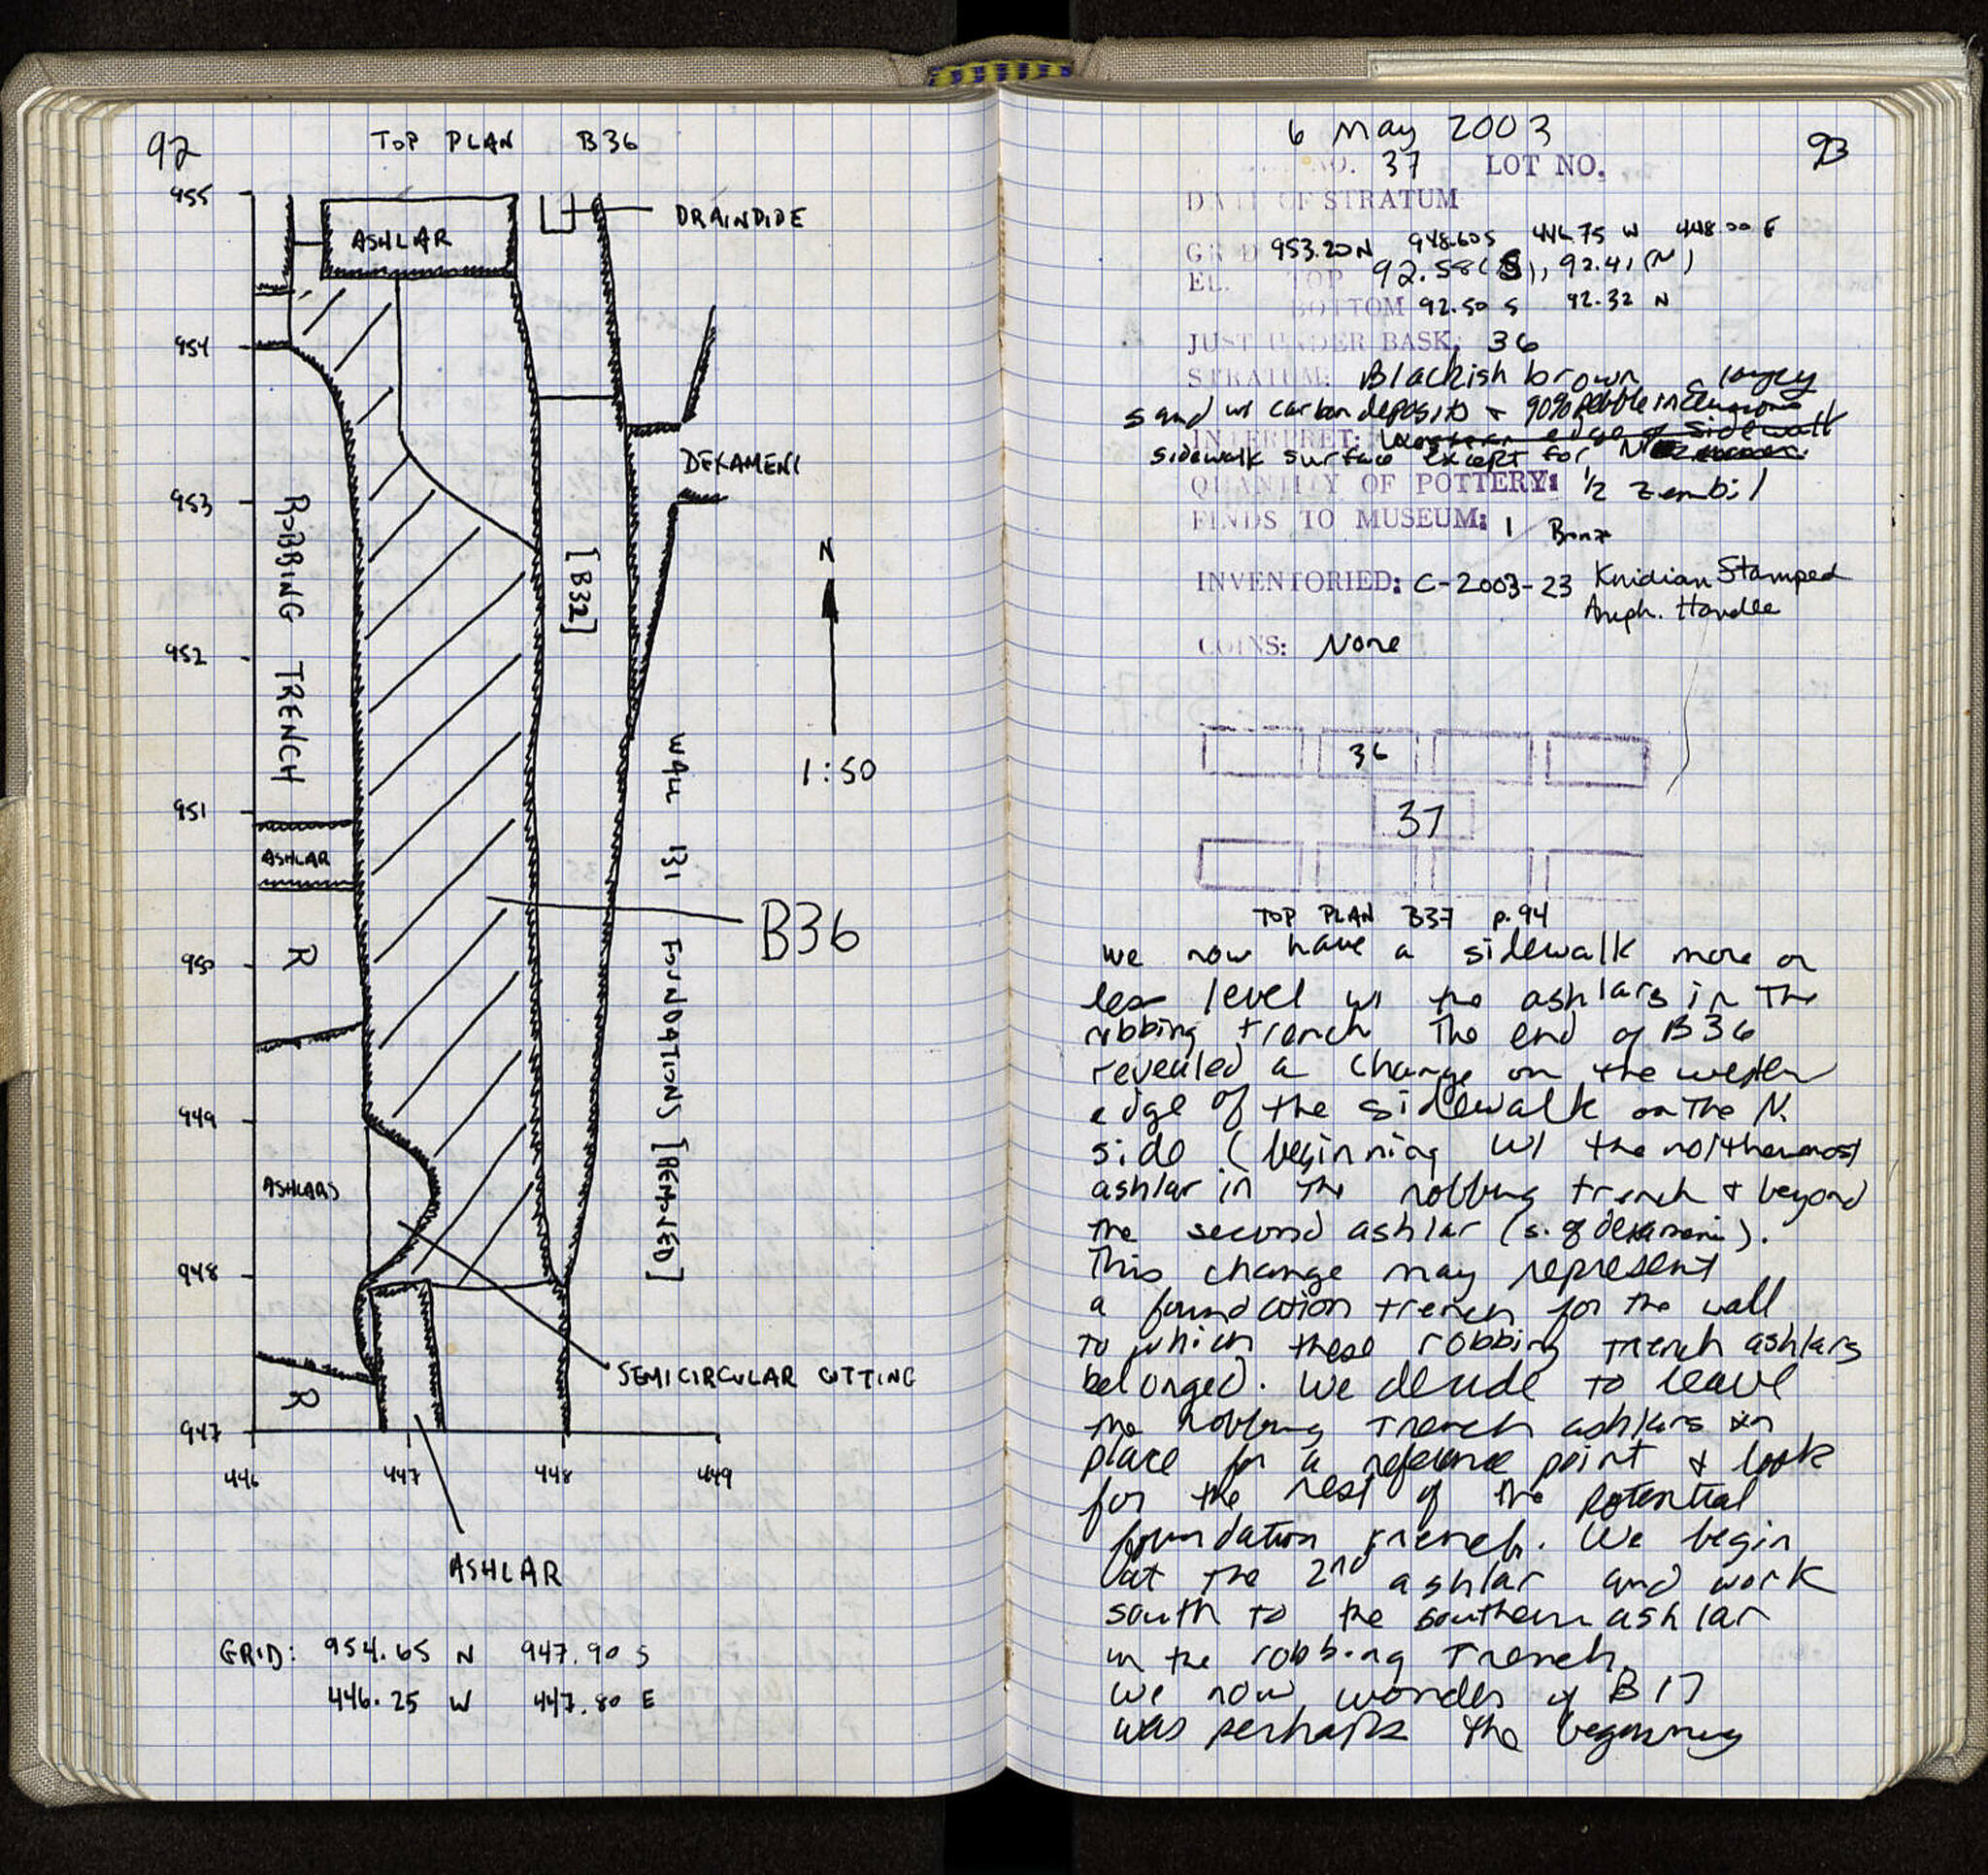 92
TOP PLAN B36
955
ASHLAR
DRAINDIDE
954
DEXAMENI
953
ROBBING TRENCH
[B32]
N
952
WALL 131 FOUNDATIONS [REMOVED]
1:50
951
ASHLAR
B36
950
R
949
ASHLARS
948
SEMICIRCULAR CUTTING
R
947
446 447 448 449
ASHLAR
GRID: 954.65 N 947.90 S
446.25 W 447.80 E
6 May 2003
93
NO. 37 LOT NO.
DATE OF STRATUM
GRID 953.20N 948.60S 446.75 W 448.00 E
EL. TOP 92.58 (S), 92.41 (N)
BOTTOM 92.50 S 92.32 N
JUST UNDER BASK. 36
STRATUM: Blackish brown clayey
sand w/ carbon deposits + 90% pebble inclusions
INTERPRET: Western edge of sidewalk
sidewalk surface except for N
QUANTITY OF POTTERY: 1/2 zembil
FINDS TO MUSEUM: 1 Bronze
INVENTORIED: C-2003-23 Knidian Stamped
Amph. Handle
COINS: None
36
37
TOP PLAN B37 p. 94
we now have a sidewalk more or
less level w/ the ashlars in the
robbing trench The end of B36
revealed a change on the western
edge of the sidewalk on the N.
side (beginning w/ the northernmost
ashlar in the robbing trench + beyond
the second ashlar (s. of dexameni).
This change may represent
a foundation trench for the wall
to which these robbing trench ashlars
belonged. We decide to leave
the robbing trench ashlars in
place for a reference point + look
for the rest of the potential
foundation trench. We begin
at the 2nd ashlar and work
south to the southern ashlar
in the robbing trench.
we now wonder if B17
was perhaps the beginning